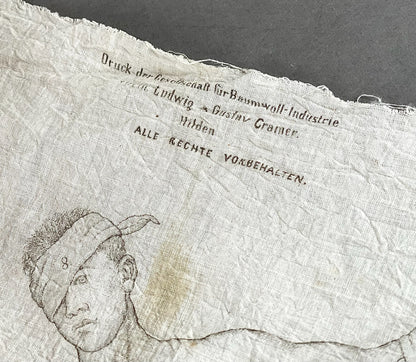 Druck der Gesellschaft für Baumwoll-Industrie
Ludwig & Gustav Cramer.
Hilden
ALLE RECHTE VORBEHALTEN.
8